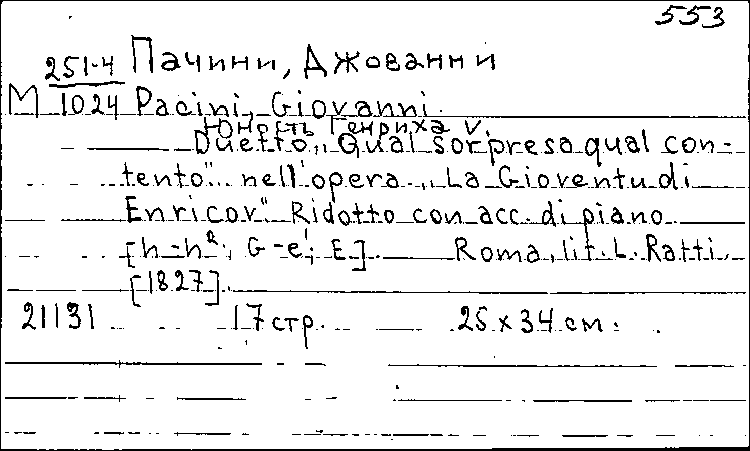 553
251-4 Пачини, Джованни
М 1024 Pacini, Giovanni.
Юность Генриха V.
Duetto „Qual sorpresa qual con-
tento" nell'opera „La Gioventu di
Enrico V." Ridotto con acc. di piano
[h-h²; G-e¹; E]. Roma, lit. L. Ratti,
[1827].
21131 17 стр. 25 x 34 см.